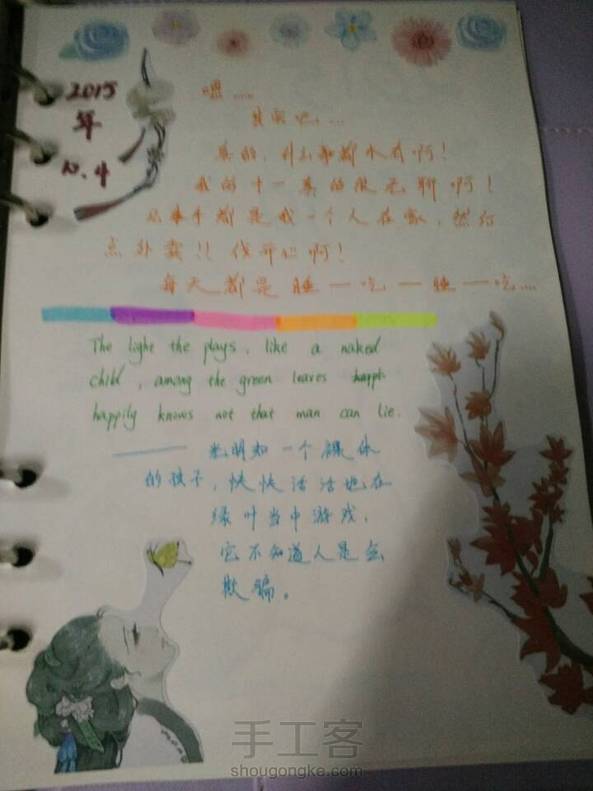 2015
年
10.4
嗯……
其实吧……
真的，什么都都木有啊！
我的十一真的很无聊啊！
基本手都是我一个人在家，然后
点外卖！！伐开心啊！
每天都是睡一吃一睡一吃……
The light the plays, like a naked
child, among the green leaves happl
happily knows not that man can lie.
—— 光明如一个裸体
的孩子，快快活活地在
绿叶当中游戏，
它不知道人是会
欺骗。
手工客
shougongke.com